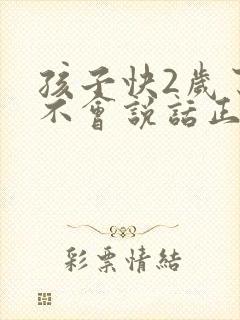 孩子快2歲了
不會說話正
彩票情結